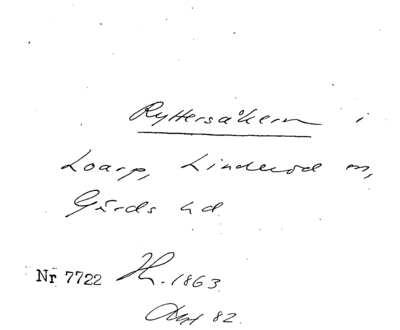 Ryttersåkern i
Loarp, Linderöd sn,
Gärds hd
Nr 7722 H. 1863.
Avst 82.